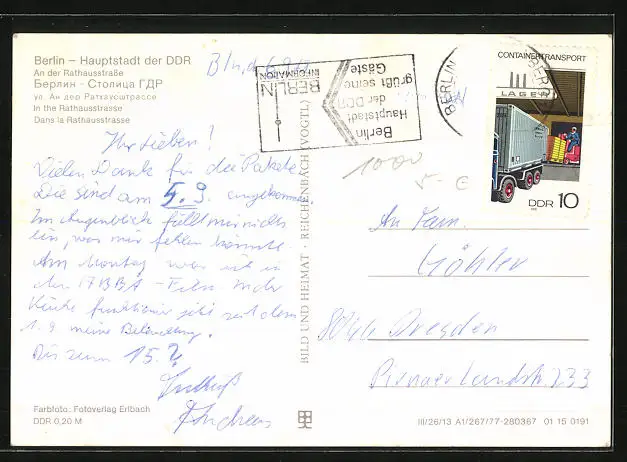 Berlin – Hauptstadt der DDR
An der Rathausstraße
Берлин - Столица ГДР
ул. Ан дер Ратхаусштрассе
In the Rathausstrasse
Dans la Rathausstrasse
Ihr Lieben!
Vielen Dank für die Pakete.
Die sind am 5.9. angekommen.
Im Augenblick fällt mir nichts
ein, was mir fehlen könnte.
Am Montag war ich in
der
Küche funktioniert jetzt seit dem
1.9. meine
Bis zum 15.?
Andreas
Farbfoto: Fotoverlag Erlbach
DDR 0,20 M
BILD UND HEIMAT · REICHENBACH (VOGTL)
Berlin
Hauptstadt
der DDR
grüßt seine
Gäste
BERLIN
INFORMATION
BERLIN
BERLIN
CONTAINERTRANSPORT
LAGER
DDR 10
1000
5.- €
An Fam.
Köhler
Dresden
Pirnaer Landstr. 233
III/26/13 A1/267/77-280367 01 15 0191